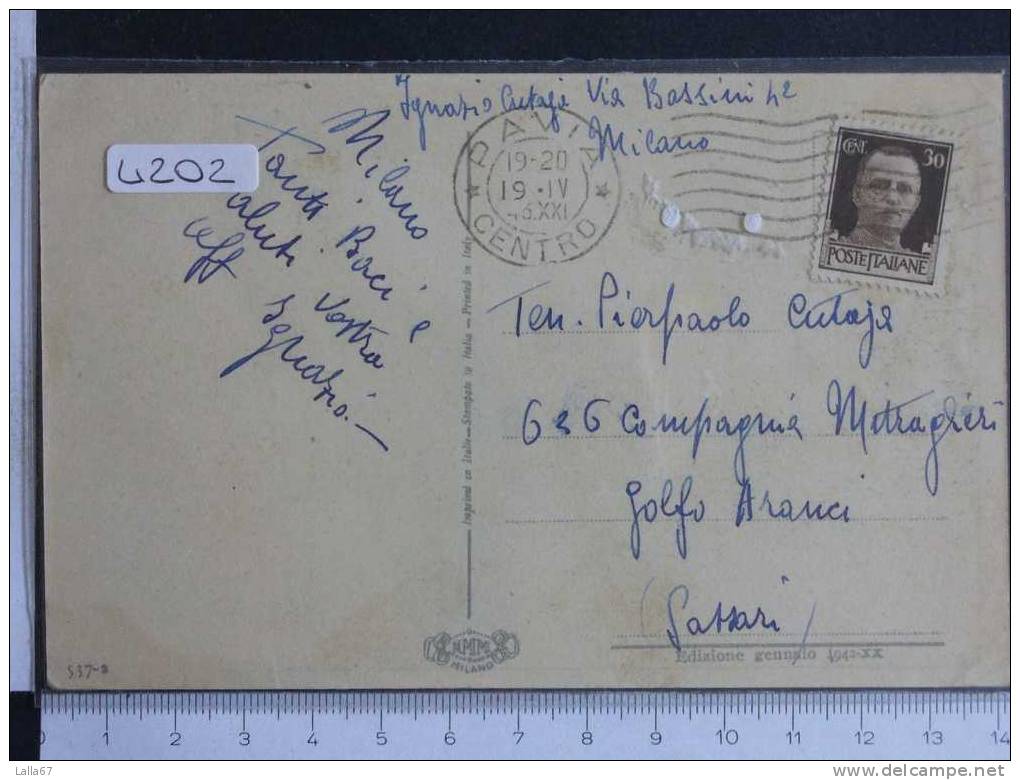 Ignazio Cutaja Via Bassini 42
Milano
4202
Milano
Tanti Baci e
saluti Vostro
aff Ignazio.
PAVIA
19-20
19.IV
XXI
CENTRO
CENT. 30
POSTE ITALIANE
Ten. Pierpaolo Cutaja
636 Compagnia Mitraglieri
Golfo Aranci
(Sassari)
Imprimé en Italie — Stampato in Italia — Printed in Italy
MILANO
Edizione gennaio 1942-XX
537-2
0 1 2 3 4 5 6 7 8 9 10 11 12 13 14
Lalla67
delcampe.net